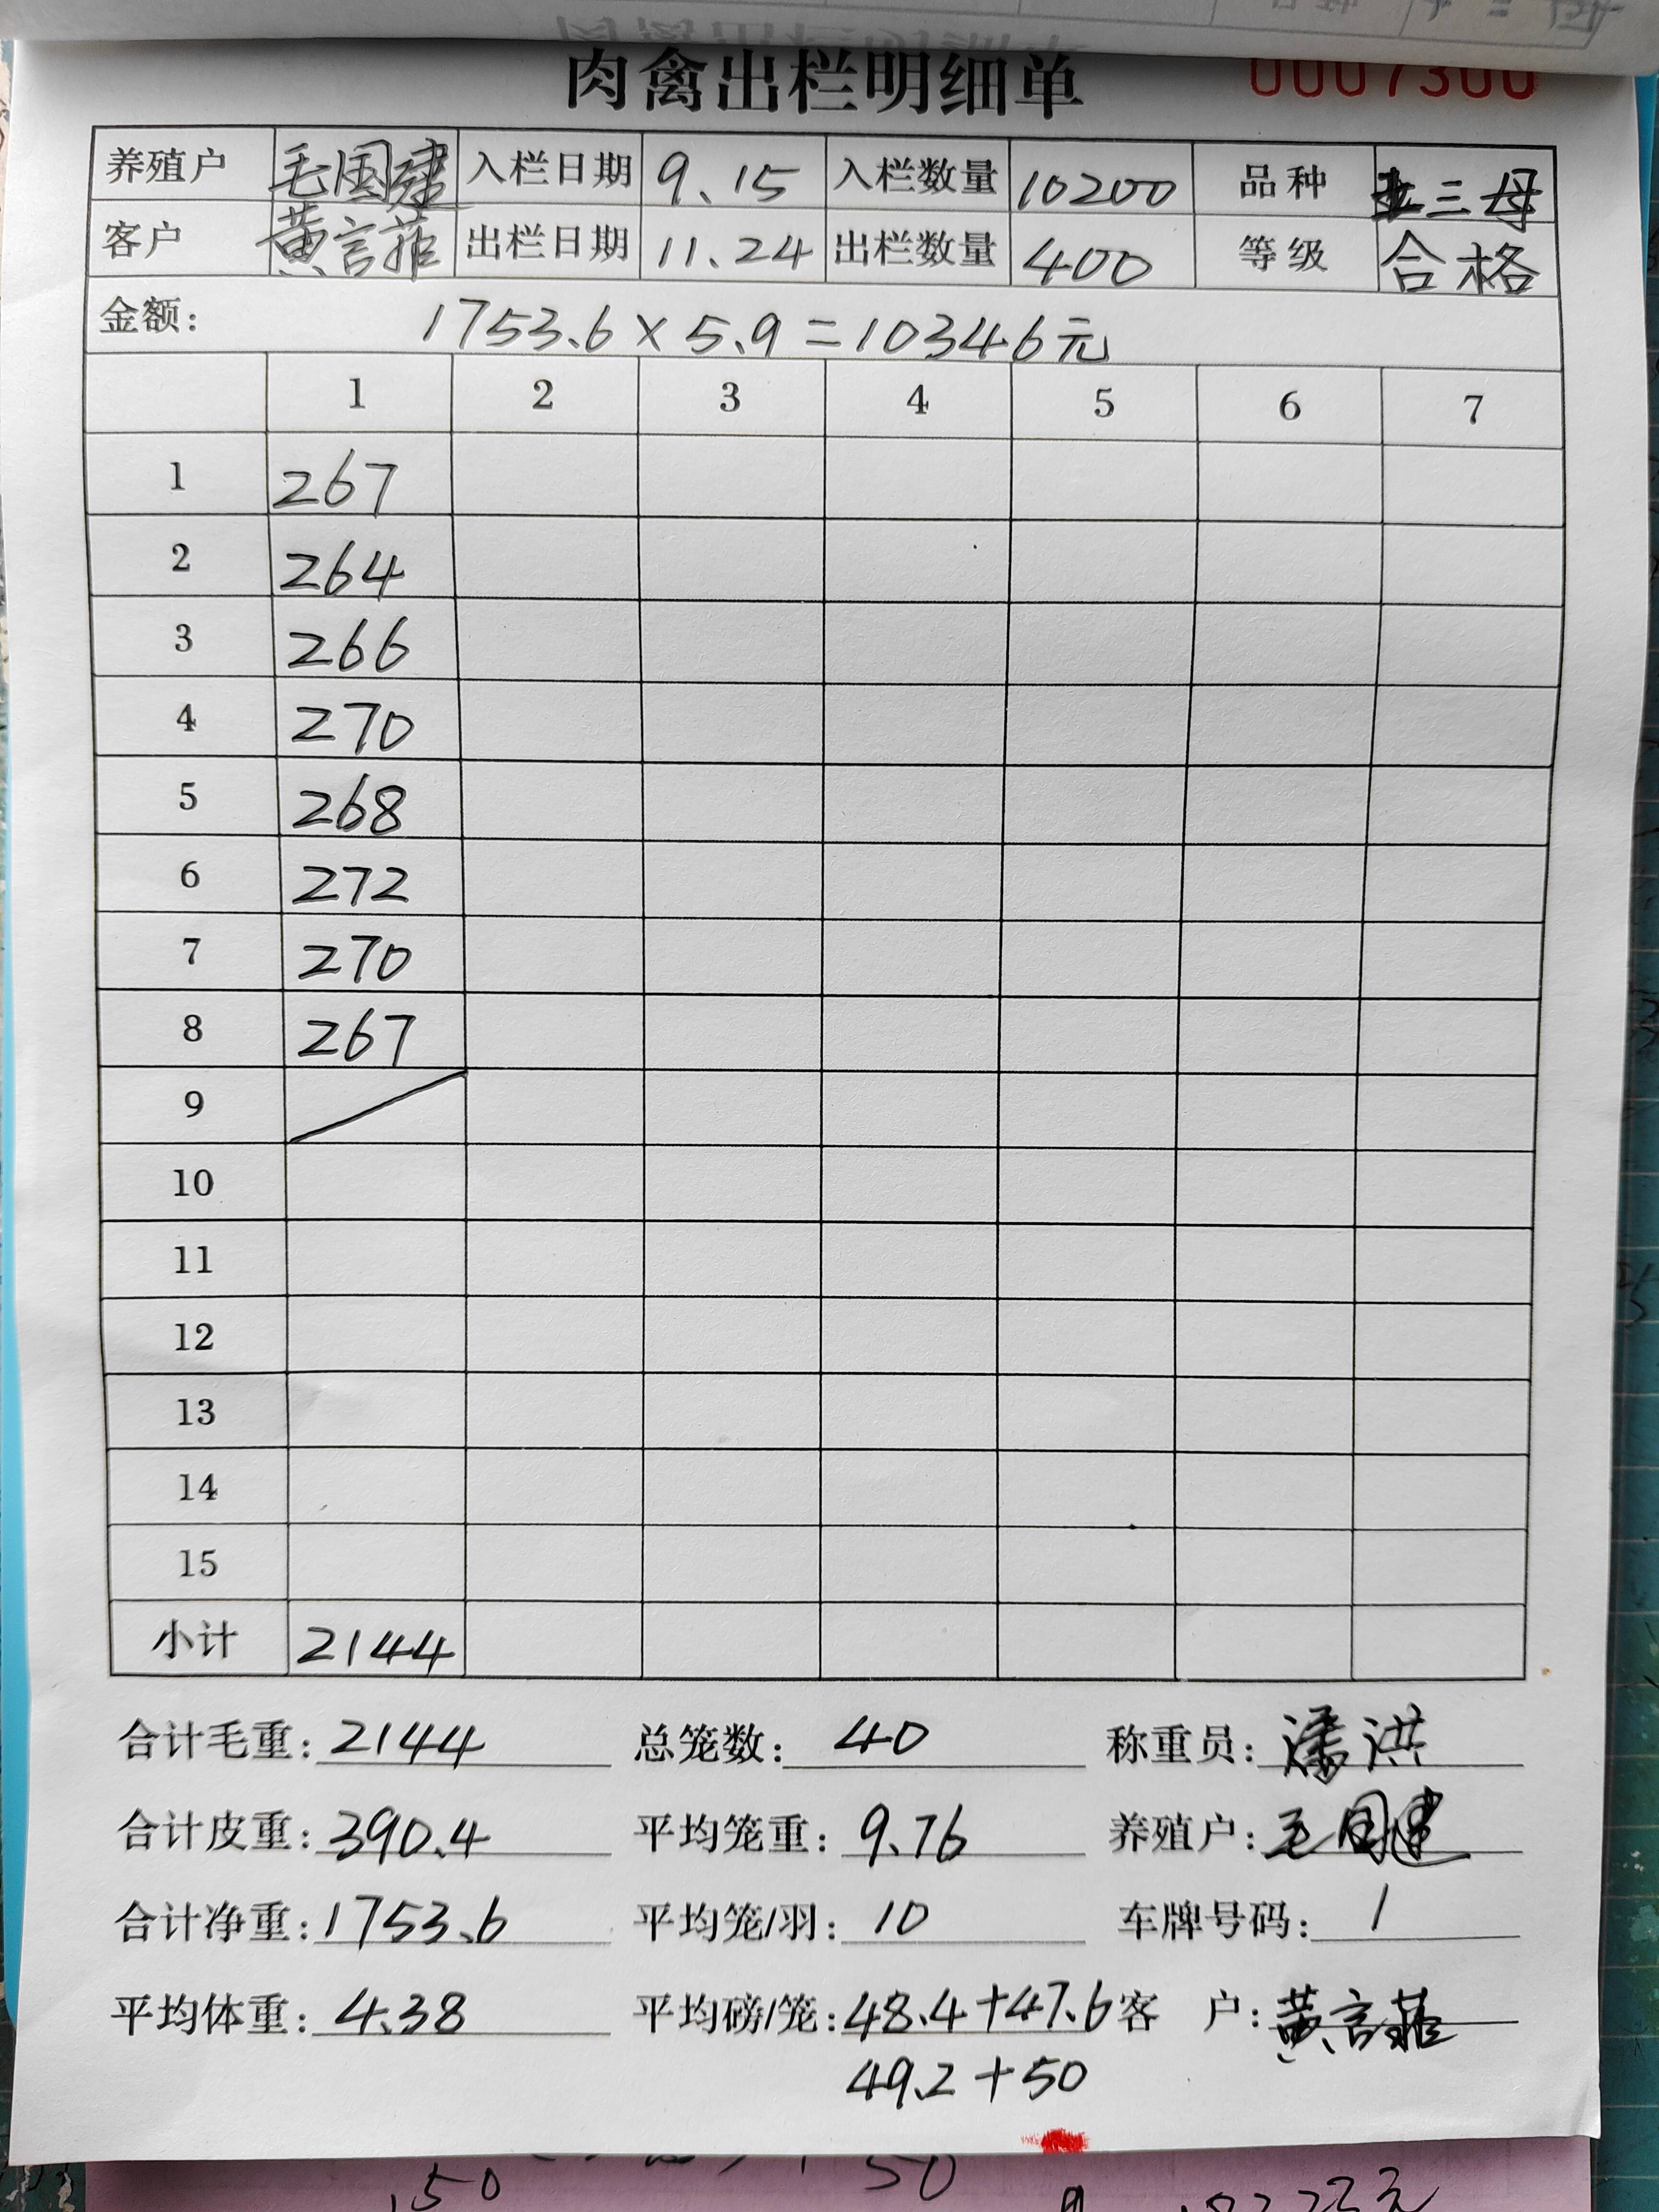 肉禽出栏明细单 0007300
养殖户 毛国建 入栏日期 9.15 入栏数量 10200 品种 三母
客户 黄言菲 出栏日期 11.24 出栏数量 400 等级 合格
金额: 1753.6×5.9=10346元
1 2 3 4 5 6 7
1 267
2 264
3 266
4 270
5 268
6 272
7 270
8 267
9
10
11
12
13
14
15
小计 2144
合计毛重: 2144 总笼数: 40 称重员: 潘洪
合计皮重: 390.4 平均笼重: 9.76 养殖户: 毛国建
合计净重: 1753.6 平均笼/羽: 10 车牌号码: 1
平均体重: 4.38 平均磅/笼: 48.4+47.6 客户: 黄言菲
49.2+50